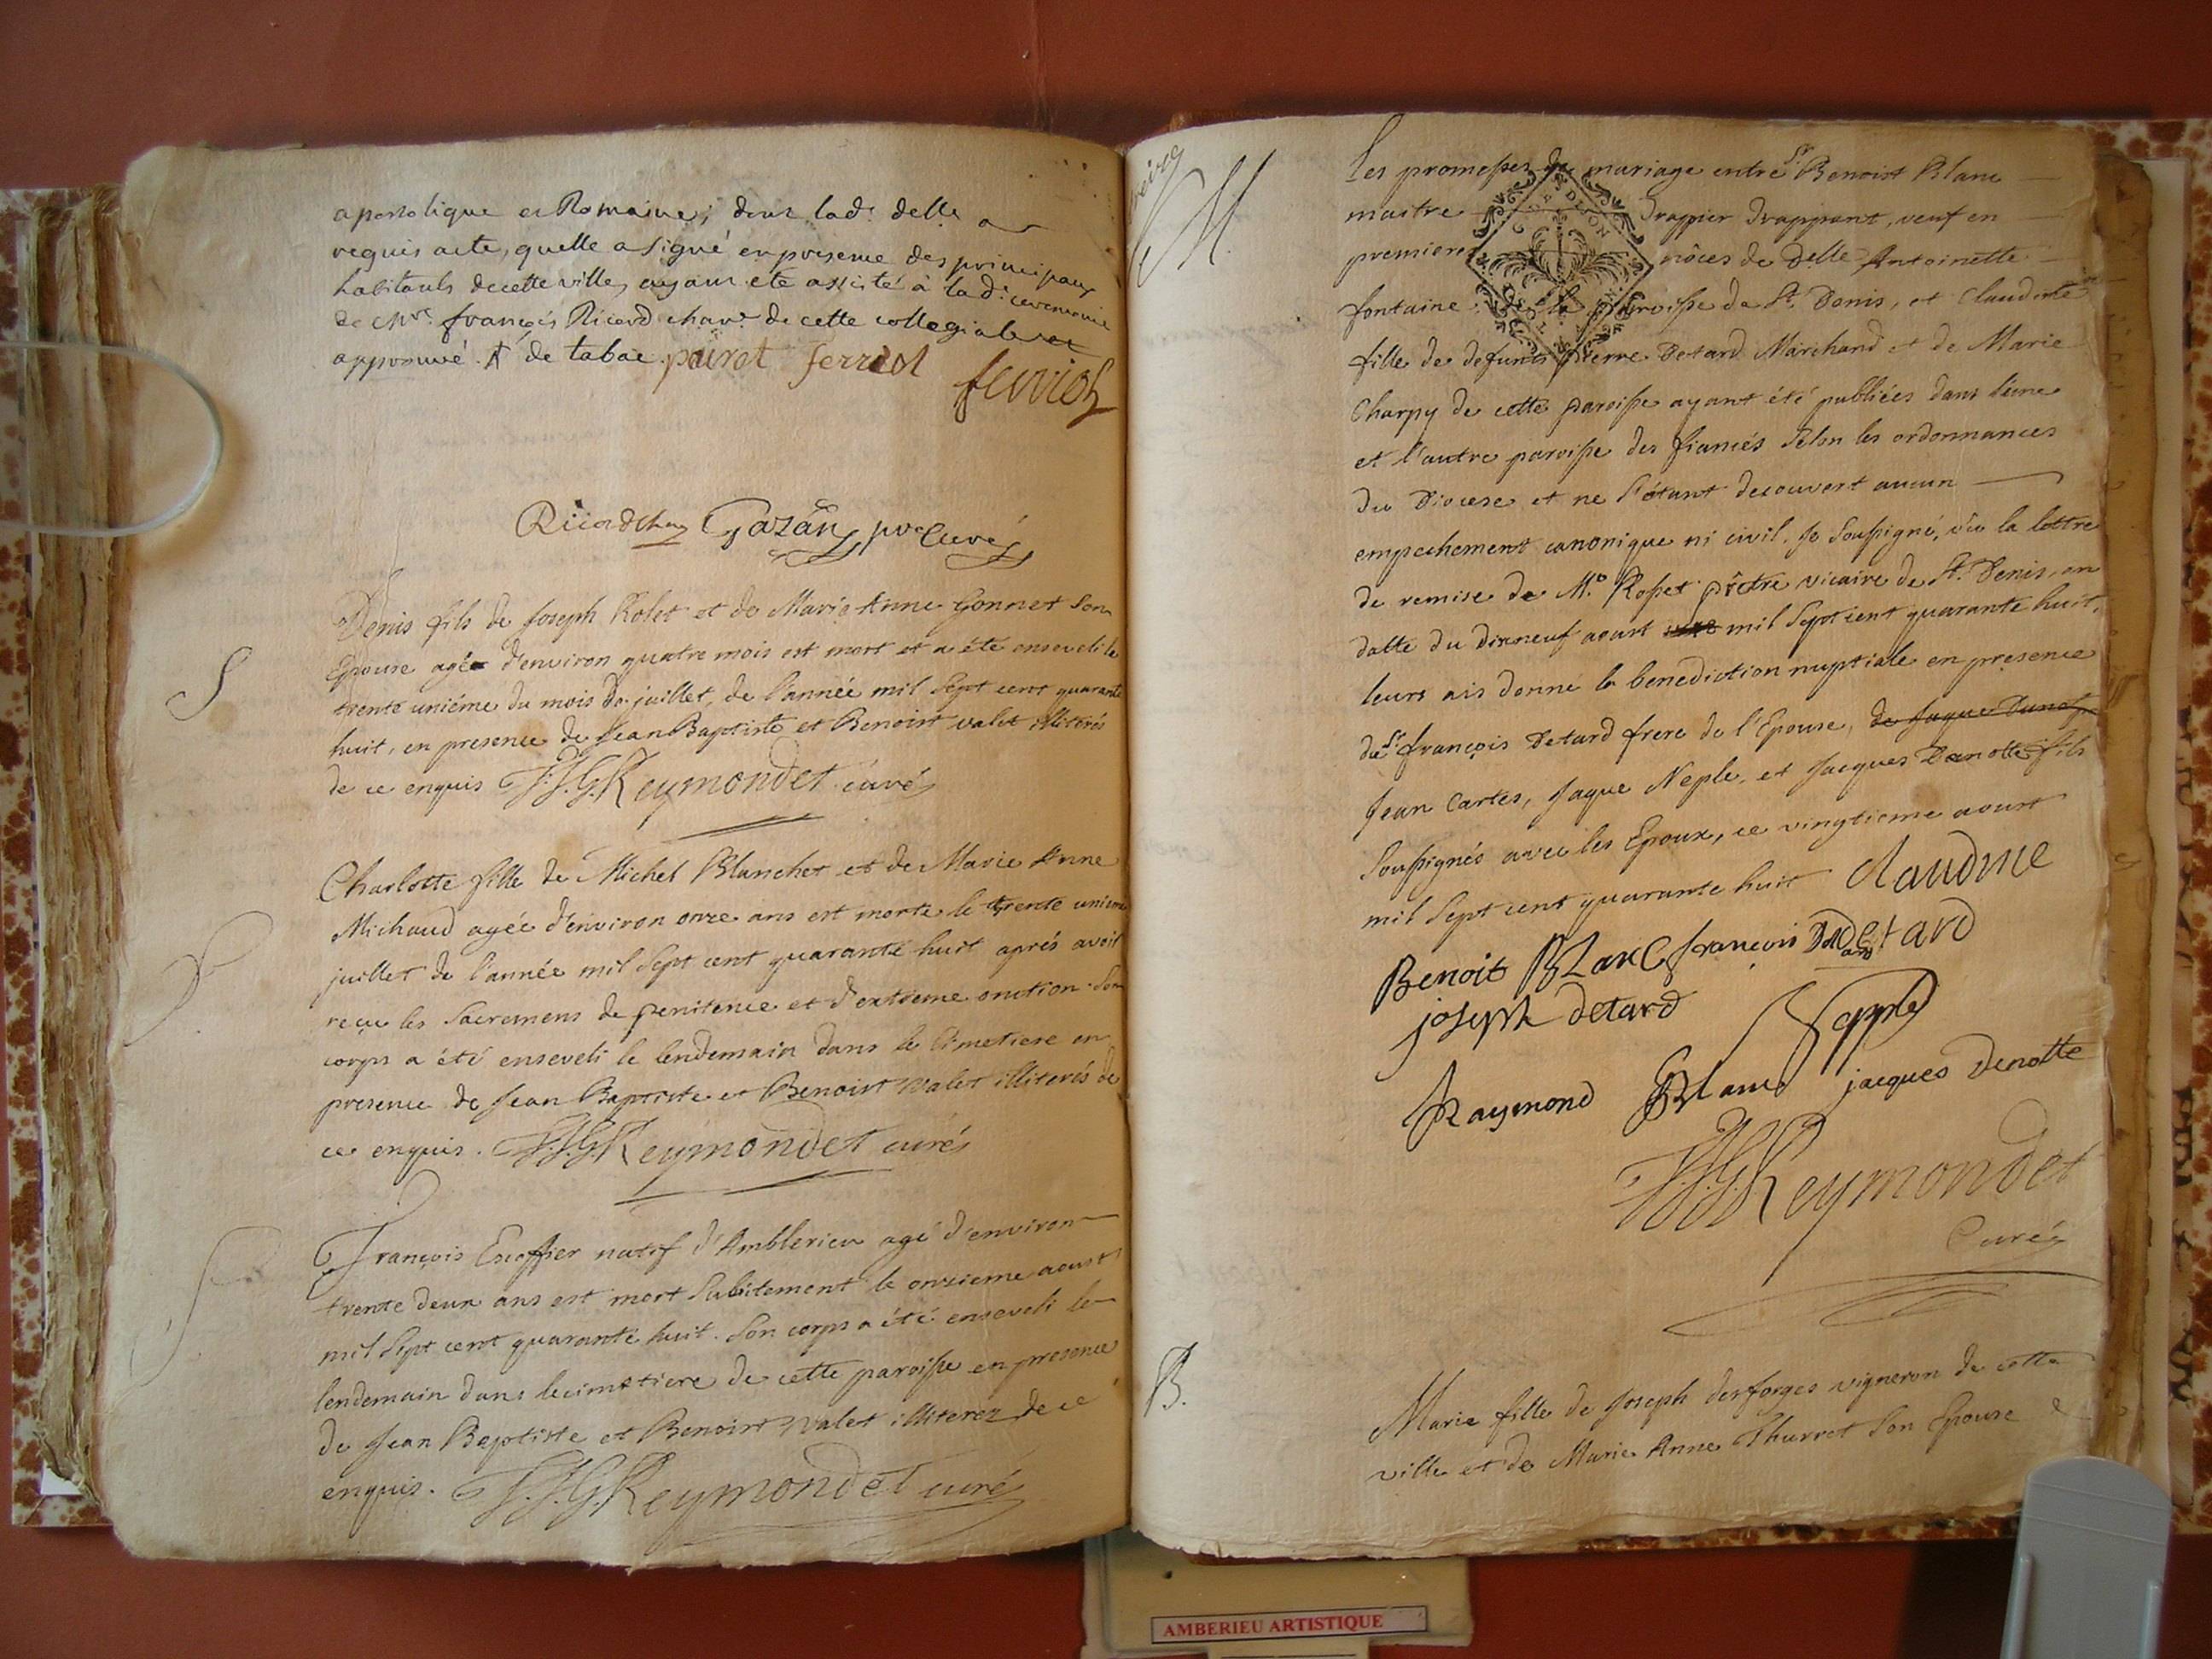 apostolique et Romaine; dont lad. delle a
requis acte, quelle a signé en presence des principaux
habitants de cette ville, ayant eté assisté à lad. ceremonie
de Mre. françois Ricard chane. de cette collegiale
approuvé de tabac. pairet ferriol
ferriol
Ricard Gazan curé
S
Denis fils de Joseph Rolet et de Marie Anne Gonnet Son
Epouse agé d'environ quatre mois est mort et a été enseveli le
trente uniéme du mois de juillet, de l'année mil Sept cent quarante
huit, en presence de Jean Baptiste et Benoist valet illiterés
de ce enquis J.J.G. Reymondet curé
S
Charlotte fille de Michel Blanchet et de Marie Anne
Michaud agée d'environ onze ans est morte le trente unieme
juillet de l'année mil Sept cent quarante huit aprés avoir
reçu les Sacremens de penitence et d'extreme onction. Son
corps a été enseveli le lendemain dans le Cimetiere en
presence de Jean Baptiste et Benoist valet illiterés de
ce enquis. J.J.G. Reymondet curé
S
François Escoffier natif d'Amblerieu agé d'environ
trente deux ans est mort Subitement le onzieme aoust
mil Sept cent quarante huit. Son corps a été enseveli le
lendemain dans le cimetiere de cette paroisse en presence
de Jean Baptiste et Benoist valet illiterez de ce
enquis. J.J.G. Reymondet curé
M.
Les promesses de mariage entre Sr. Benoist Blanc
maitre Drappier Drappant, veuf en
premieres nôces de Delle Antoinette
fontaine de la paroisse de St. Denis, et Claudine
fille de defunts Pierre Detard Marchand et de Marie
Charpy de cette paroisse ayant été publiées dans l'une
et l'autre paroisse des fiancés Selon les ordonnances
du Diocese et ne S'étant decouvert aucun
empechement canonique ni civil. Je Soussigné, vû la lettre
de remise de Mr. Rosset prêtre vicaire de St. Denis, en
datte du dixneuf aoust mil Sept cent quarante huit,
leurs ais donné la benediction nuptiale en presence
de Sr. françois Detard frere de l'Epouse, de Jaque
Jean Cartes, Jaque Neple, et Jacques Denotte fils
Soussignés avec les Epoux, ce vingtieme aoust
mil Sept cent quarante huit Claudine
Benoit Blanc françois Detard Detard
joseph detard Nepple
Raymond Blanc jacques Denotte
J.J.G. Reymondet
Curé
B.
Marie fille de Joseph desforges vigneron de cette
ville et de Marie Anne Thurret Son Epouse
AMBERIEU ARTISTIQUE